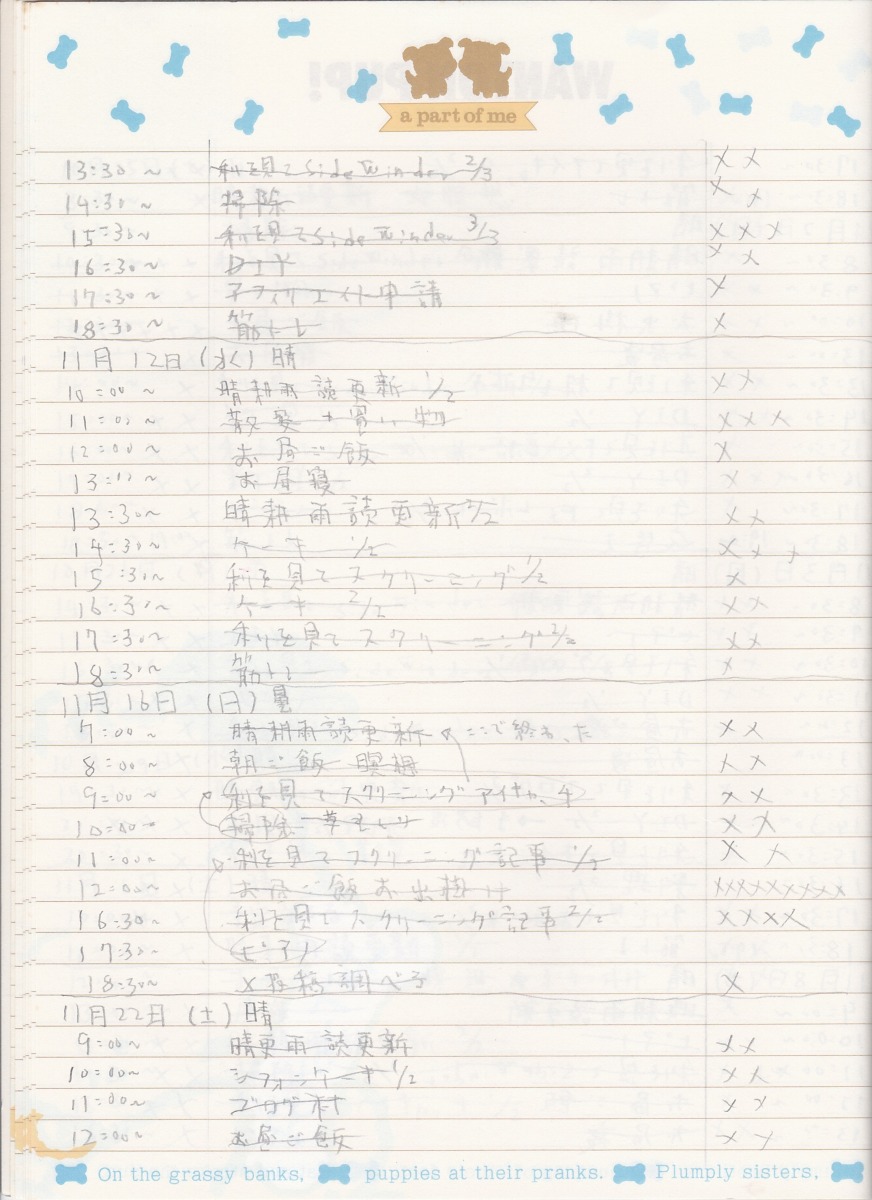 a part of me
13:30~ 利を見てSide Winder 2/3 X X
14:30~ 掃除 X X
15:30~ 利を見てSide Winder 3/3 X X X
16:30~ DIY X X
17:30~ アフィリエイト申請 X
18:30~ 筋トレ X
11月12日(水)晴
10:00~ 晴耕雨読更新 1/2 X X
11:00~ 散髪+買い物 X X X
12:00~ お昼ご飯 X
13:00~ お昼寝 X
13:30~ 晴耕雨読更新 2/2 X X
14:30~ ケーキ 1/2 X X X
15:30~ 利を見てスクリーニング 1/2 X
16:30~ ケーキ 2/2 X X
17:30~ 利を見てスクリーニング 2/2 X X
18:30~ 筋トレ X
11月16日(日)曇
7:00~ 晴耕雨読更新 ここで終わった X X
8:00~ 朝ご飯 瞑想 X X
9:00~ 利を見てスクリーニングアイキャッチ X X
10:00~ 掃除 草むしり X X
11:00~ 利を見てスクリーニング記事 1/2 X X
12:00~ お昼ご飯 お出掛け XXXXXXXXX
16:30~ 利を見てスクリーニング記事 2/2 X X X X
17:30~ ピアノ
18:30~ X投稿調べる X
11月22日(土)晴
9:00~ 晴更雨読更新 X X
10:00~ シフォンケーキ 1/2 X X
11:00~ ブログ村 X X
12:00~ お昼ご飯 X X
On the grassy banks, puppies at their pranks. Plumply sisters,